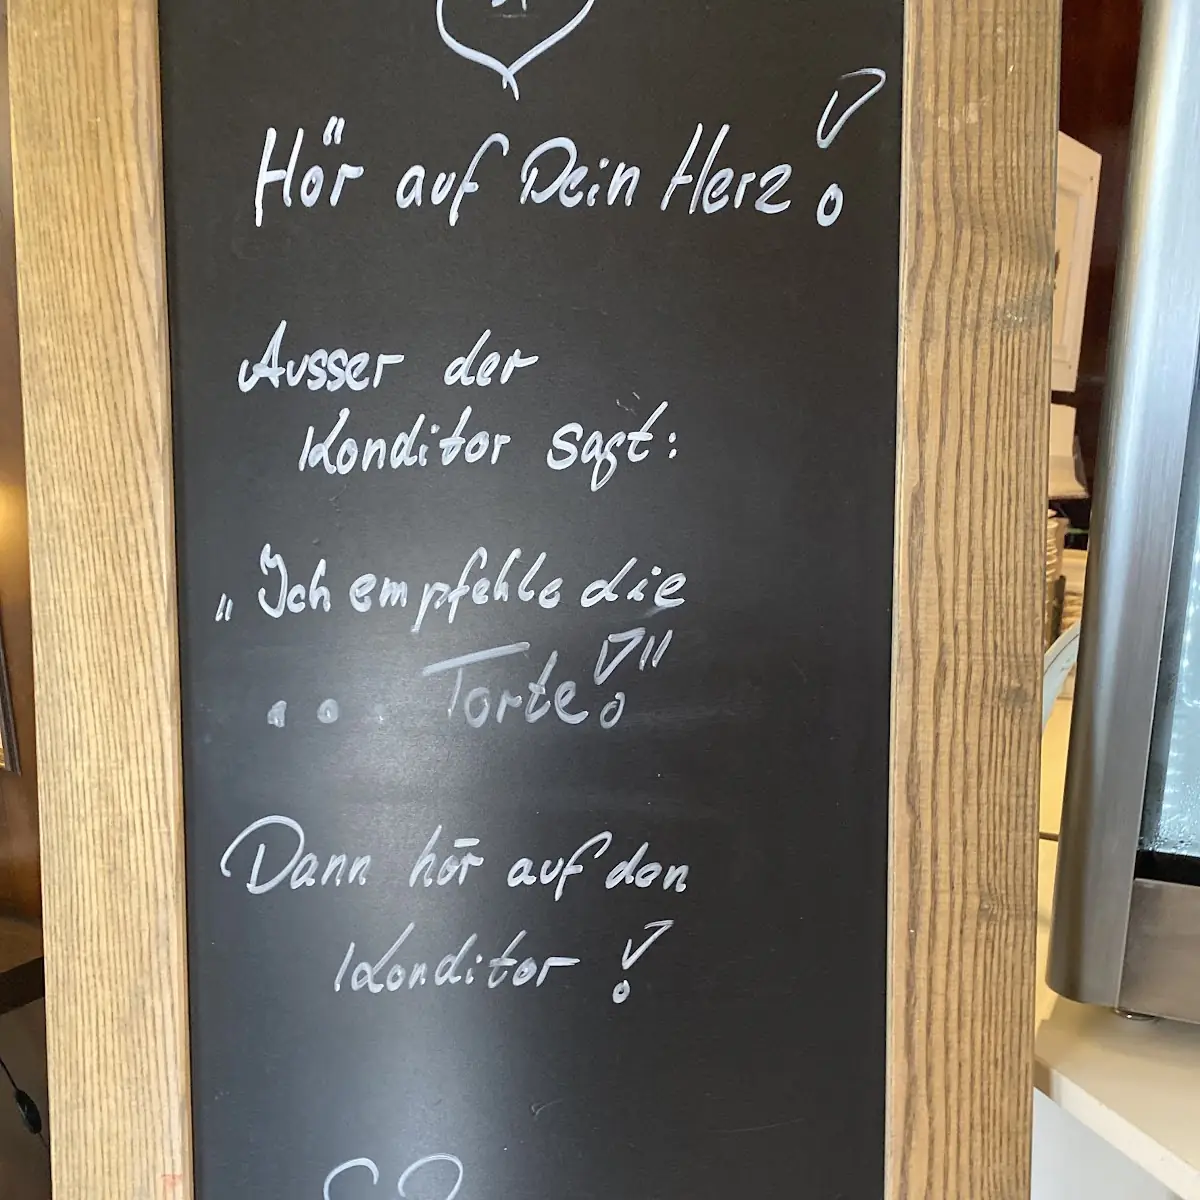 Hör auf Dein Herz!
Ausser der
Konditor sagt:
„Ich empfehle die
... Torte!"
Dann hör auf den
Konditor!